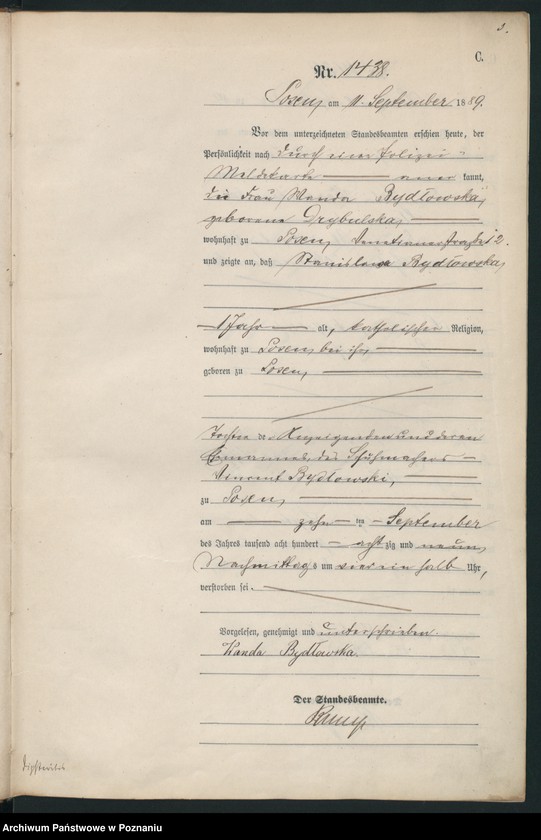 C.
Nr. 1438.
Posen, am 11. September 1889.
Vor dem unterzeichneten Standesbeamten erschien heute, der
Persönlichkeit nach durch eine Polizei-
Meldekarte aner kannt,
die Frau Wanda Bydłowska,
geborene Drybulska,
wohnhaft zu Posen, Venetianerstraße 12.
und zeigte an, daß Stanislawa Bydłowska,
1 Jahr alt, katholischer Religion,
wohnhaft zu Posen, bei ihr,
geboren zu Posen,
Tochter der Anzeigenden und deren
Ehemannes des Schuhmachers
Vincent Bydłowski,
zu Posen,
am zehn ten September
des Jahres tausend acht hundert acht zig und neun,
Nachmittags um vier ein halb Uhr,
verstorben sei.
Vorgelesen, genehmigt und unterschrieben.
Wanda Bydłowska.
Der Standesbeamte.
Archiwum Państwowe w Poznaniu